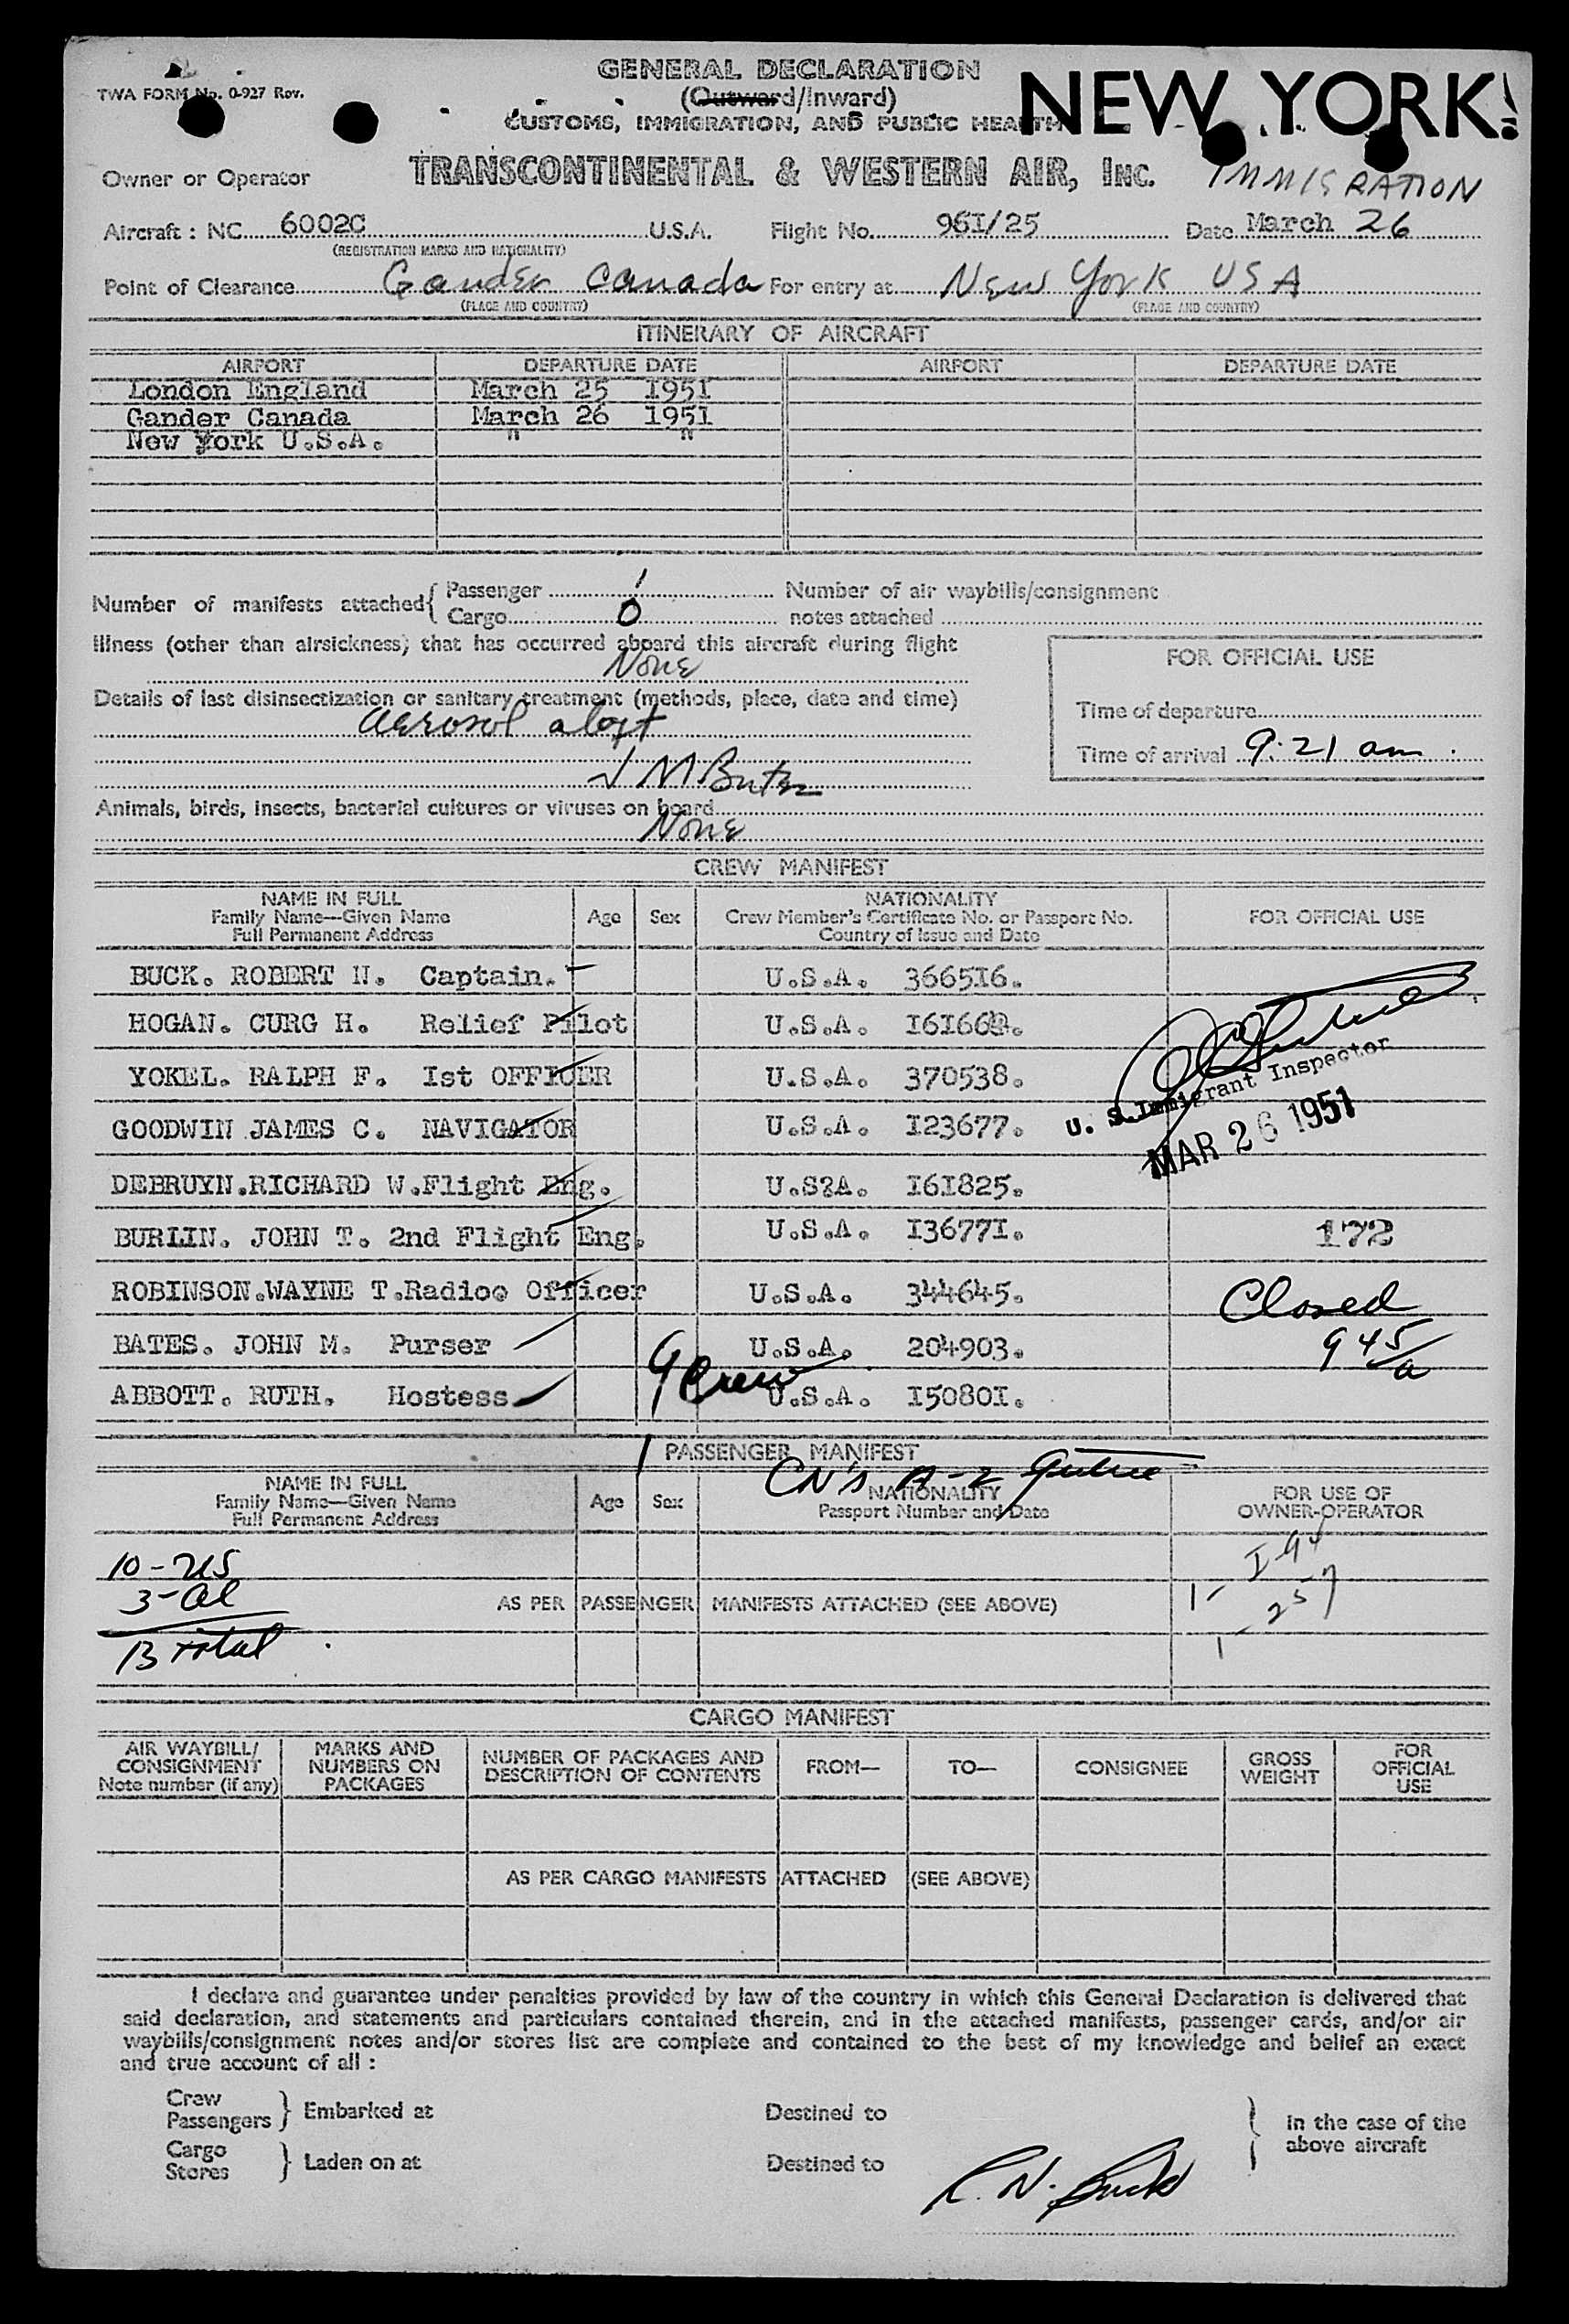 GENERAL DECLARATION
TWA FORM No. 0-927 Rev.
(Outward/Inward)
NEW YORK
CUSTOMS, IMMIGRATION, AND PUBLIC HEALTH
Owner or Operator TRANSCONTINENTAL & WESTERN AIR, INC. IMMIGRATION
Aircraft : NC 6002C U.S.A. Flight No. 96I/25 Date March 26
(REGISTRATION MARKS AND NATIONALITY)
Point of Clearance Gander Canada For entry at New York USA
(PLACE AND COUNTRY) (PLACE AND COUNTRY)
ITINERARY OF AIRCRAFT
AIRPORT DEPARTURE DATE AIRPORT DEPARTURE DATE
London England March 25 195I
Gander Canada March 26 195I
New York U.S.A. " "
Number of manifests attached { Passenger 1 Number of air waybills/consignment
Cargo 0 notes attached
Illness (other than airsickness) that has occurred aboard this aircraft during flight
None
FOR OFFICIAL USE
Details of last disinsectization or sanitary treatment (methods, place, date and time)
Aerosol aloft
Time of departure
Time of arrival 9:21 am
Animals, birds, insects, bacterial cultures or viruses on board
None
CREW MANIFEST
NAME IN FULL
Family Name—Given Name
Full Permanent Address
Age Sex
NATIONALITY
Crew Member's Certificate No. or Passport No.
Country of Issue and Date
FOR OFFICIAL USE
BUCK. ROBERT N. Captain. U.S.A. 3665I6.
HOGAN. CURG H. Relief Pilot U.S.A.
YOKEL. RALPH F. Ist OFFICER U.S.A. 370538.
U. S. Immigrant Inspector
GOODWIN JAMES C. NAVIGATOR U.S.A. I23677.
MAR 26 1951
DEBRUYN.RICHARD W.Flight Eng. U.S?A. I6I825.
BURLIN. JOHN T. 2nd Flight Eng. U.S.A. I3677I.
172
ROBINSON.WAYNE T.Radioo Officer U.S.A. 344645.
Closed
BATES. JOHN M. Purser U.S.A. 204903.
945/a
9 Crew
ABBOTT. RUTH. Hostess U.S.A. I5080I.
PASSENGER MANIFEST
CN's A-2
NAME IN FULL
Family Name—Given Name
Full Permanent Address
Age Sex
NATIONALITY
Passport Number and Date
FOR USE OF
OWNER-OPERATOR
10-US
3-Al
AS PER PASSENGER MANIFESTS ATTACHED (SEE ABOVE)
13 Total
CARGO MANIFEST
AIR WAYBILL/
CONSIGNMENT
Note number (if any)
MARKS AND
NUMBERS ON
PACKAGES
NUMBER OF PACKAGES AND
DESCRIPTION OF CONTENTS
FROM— TO— CONSIGNEE
GROSS
WEIGHT
FOR
OFFICIAL
USE
AS PER CARGO MANIFESTS ATTACHED (SEE ABOVE)
I declare and guarantee under penalties provided by law of the country in which this General Declaration is delivered that
said declaration, and statements and particulars contained therein, and in the attached manifests, passenger cards, and/or air
waybills/consignment notes and/or stores list are complete and contained to the best of my knowledge and belief an exact
and true account of all :
Crew
Passengers } Embarked at Destined to
In the case of the
above aircraft
Cargo
Stores } Laden on at Destined to
R. N. Buck